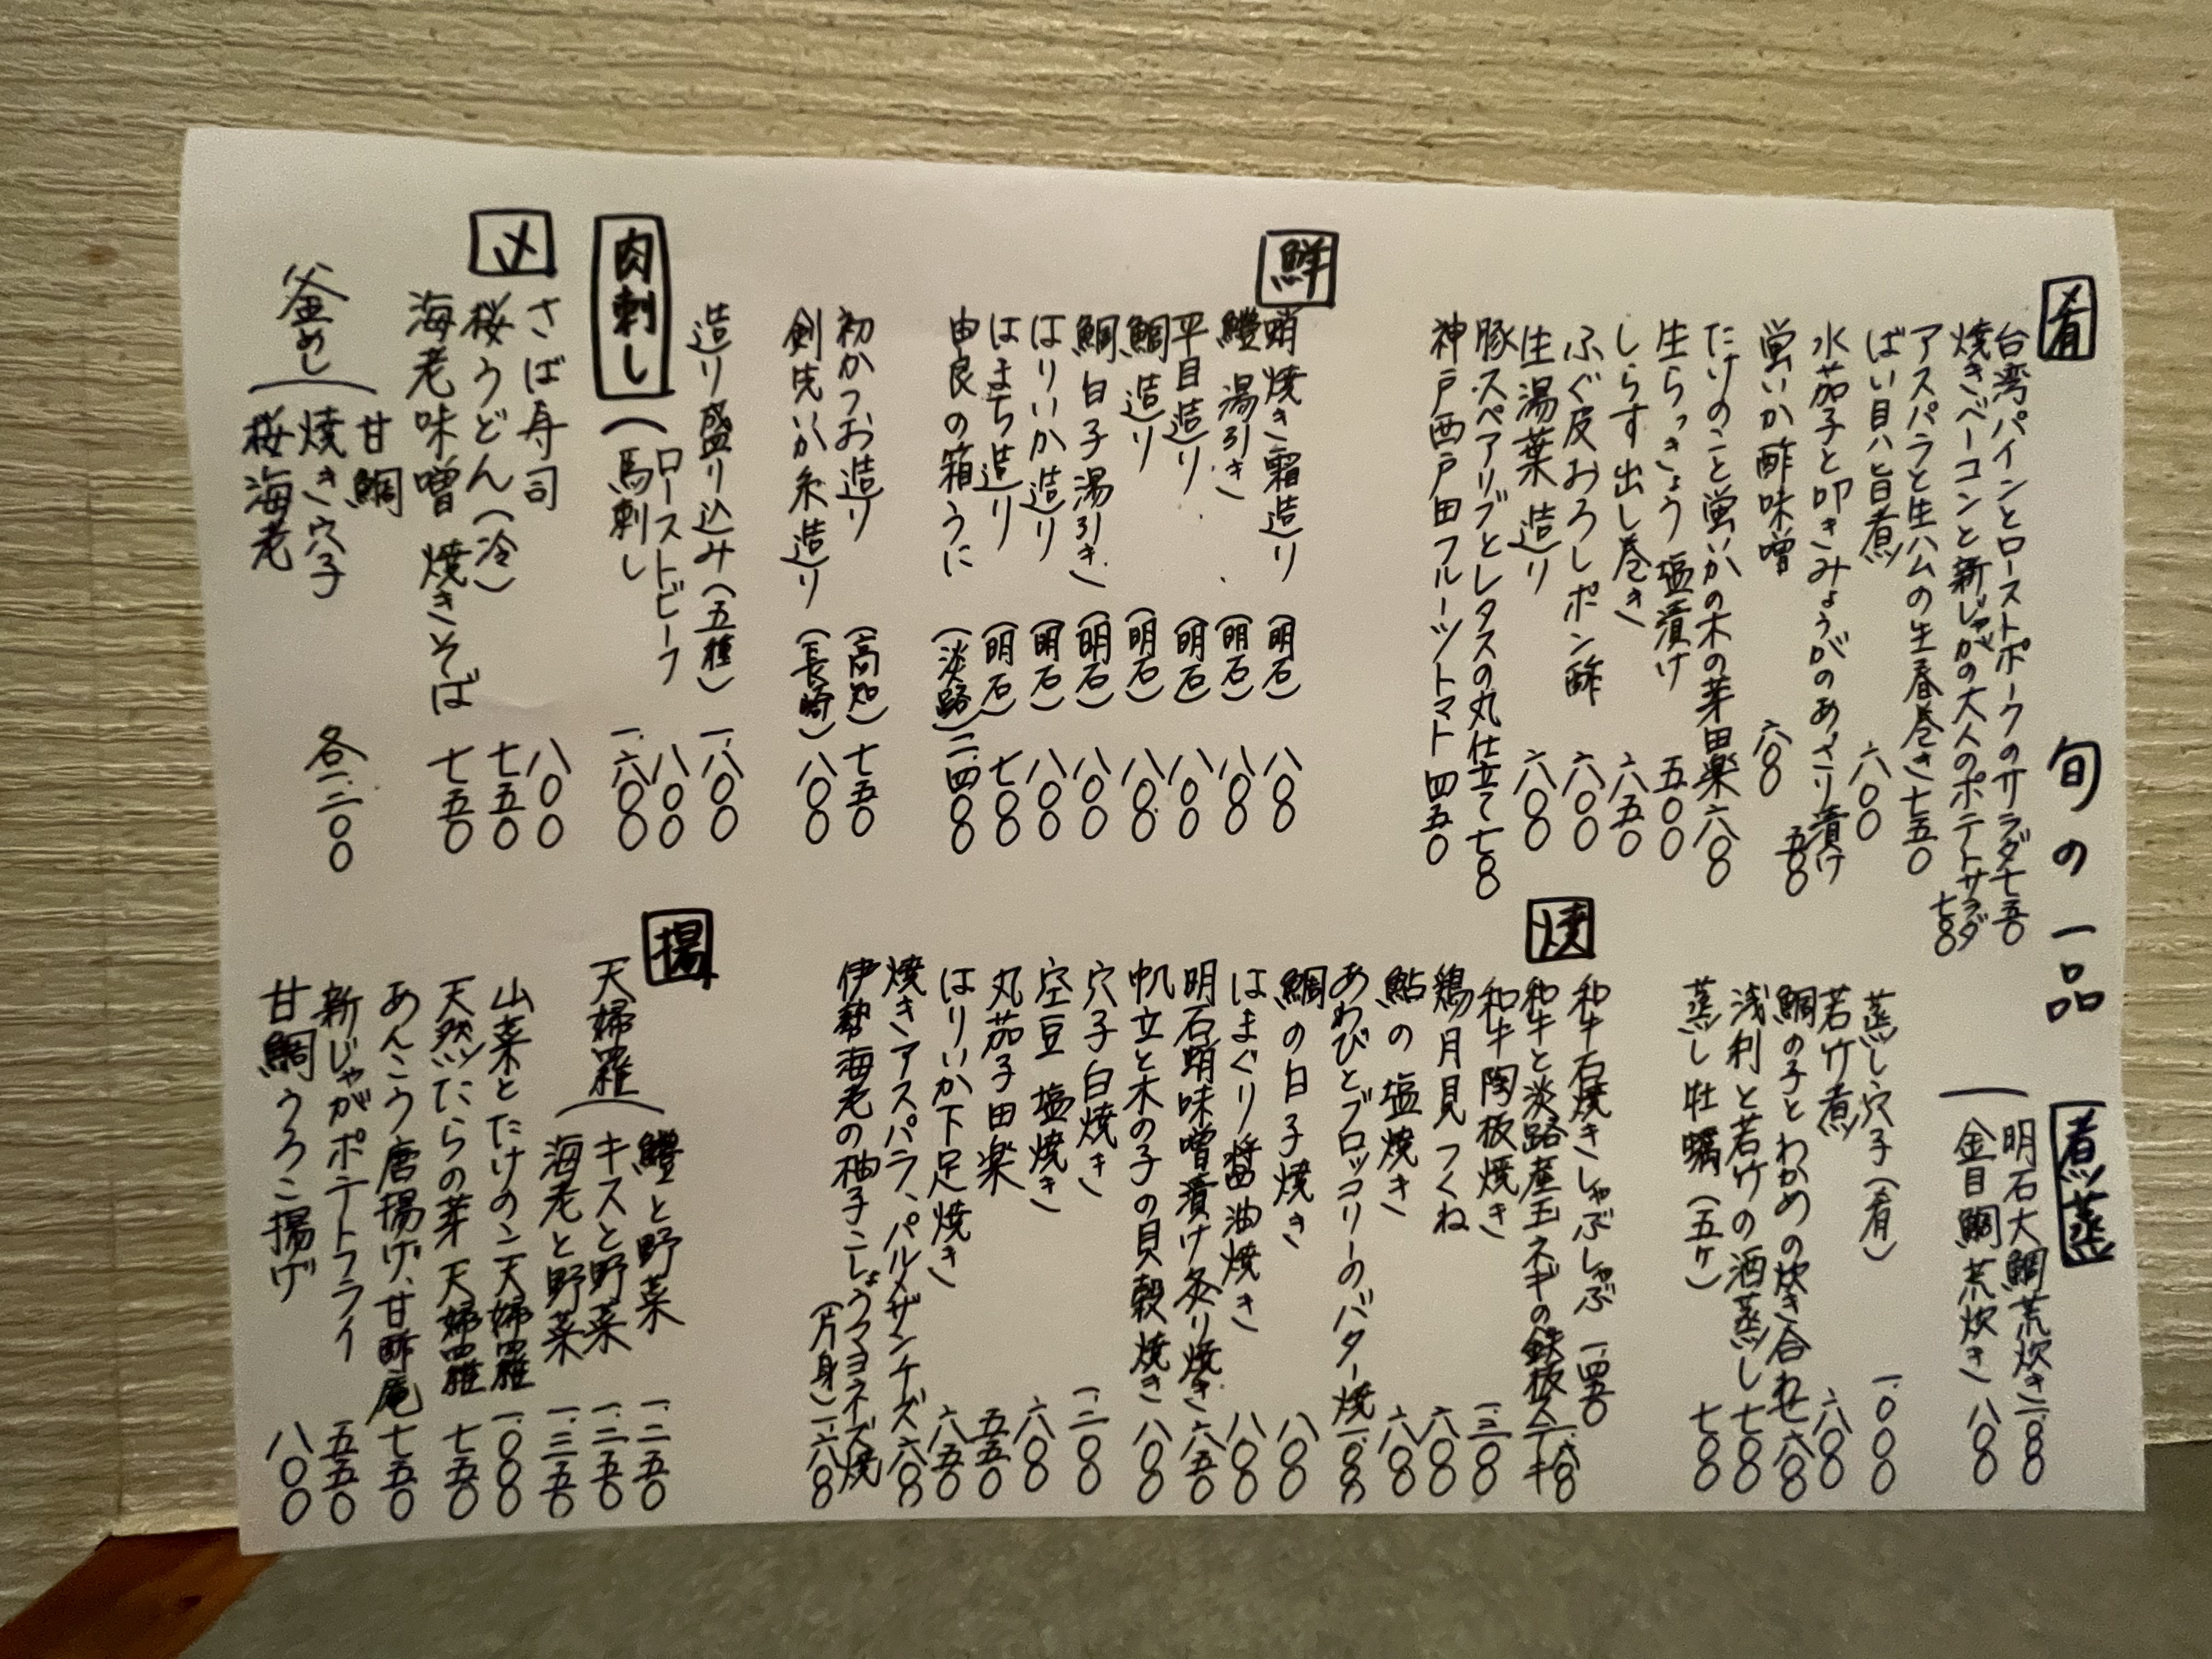 旬の一品
肴
台湾パインとローストポークのサラダ 七五〇
焼きベーコンと新じゃがの大人のポテトサラダ 七〇〇
アスパラと生ハムの生春巻き 七五〇
ばい貝ハと旨煮 六〇〇
水茄子と叩きみょうがのあさり漬け 五〇〇
蛍いか酢味噌 六〇〇
たけのこと蛍いかの木の芽田楽 六八〇
生らっきょう塩漬け 五〇〇
しらす出し巻き 六五〇
ふぐ皮おろしポン酢 六〇〇
生湯葉造り 六〇〇
豚スペアリブとレタスの丸仕立て 七〇〇
神戸西戸田フルーツトマト 四五〇
鮮
蛸焼き霜造り (明石) 八〇〇
鱧湯引き (明石) 八〇〇
平目造り (明石) 八〇〇
鯛造り (明石) 八〇〇
鯛白子湯引き (明石) 八〇〇
はりいか造り (明石) 八〇〇
はまち造り (明石) 七〇〇
由良の箱うに (淡路) 二.四〇〇
初かつお造り (高知) 七五〇
剣先いか糸造り (長崎) 八〇〇
造り盛り込み(五種) 一.八〇〇
肉刺し
ローストビーフ 八〇〇
馬刺し 一.六〇〇
〆
さば寿司 八〇〇
桜うどん(冷) 七五〇
海老味噌焼きそば 七五〇
釜めし
甘鯛
焼き穴子
桜海老
各一.二〇〇
煮蒸
明石大鯛荒炊き
金目鯛荒炊き 八〇〇
蒸し穴子(肴) 一.〇〇〇
若竹煮 六八〇
鯛の子とわかめの炊き合わせ 六八〇
浅利と若竹の酒蒸し 七〇〇
蒸し牡蠣(五ヶ) 七〇〇
焼
和牛石焼きしゃぶしゃぶ 一.四五〇
和牛と淡路産玉ネギの鉄板ステーキ
和牛陶板焼き 一.三〇〇
鶏月見つくね 六八〇
鮎の塩焼き 六八〇
あわびとブロッコリーのバター焼
鯛の白子焼き 八〇〇
はまぐり醤油焼き 八〇〇
明石蛸味噌漬け炙り焼き 六五〇
帆立と木の子の貝殻焼き 八〇〇
穴子白焼き 一.二〇〇
空豆塩焼き 六〇〇
丸茄子田楽 五五〇
はりいか下足焼き 六五〇
焼きアスパラ、パルメザンチーズ 六八〇
伊勢海老の柚子こしょうマヨネーズ焼
(片身) 一.六八〇
揚
天婦羅
鱧と野菜 一.二五〇
キスと野菜 一.二五〇
海老と野菜 一.三五〇
山菜とたけのこ天婦羅 一.〇〇〇
天然たらの芽天婦羅 七五〇
あんこう唐揚げ、甘酢庵 七五〇
新じゃがポテトフライ 五五〇
甘鯛うろこ揚げ 八〇〇